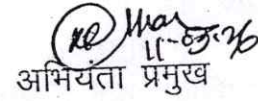 11-03-26
अभियंता प्रमुख